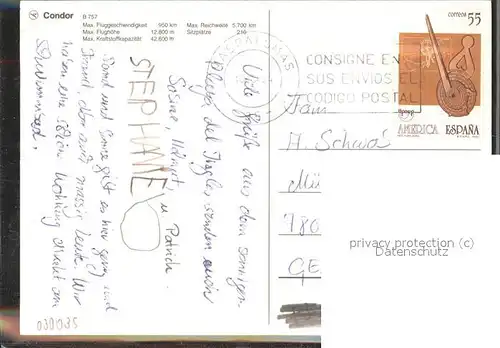 Condor
B 757
Max. Fluggeschwindigkeit 950 km
Max. Flughöhe 12.800 m
Max. Kraftstoffkapazität 42.600 l
Max. Reichweite 5.700 km
Sitzplätze 210
Viele Grüße aus dem sonnigen
Playa del Ingles senden euch
Sabine, Helmut, u. Patrick
STEPHANIE
Sand und Sonne gibt es hier genug und
Strand, aber auch massig Leute. Wir
haben eine schöne Wohnung direkt am
Schwimmbad.
030935
LAS PALMAS
CONSIGNE EN
SUS ENVIOS EL
CODIGO POSTAL
correos 55
AMERICA ESPAÑA
Fam
A. Schwa
Mü
780
GE
privacy protection (c)
Datenschutz